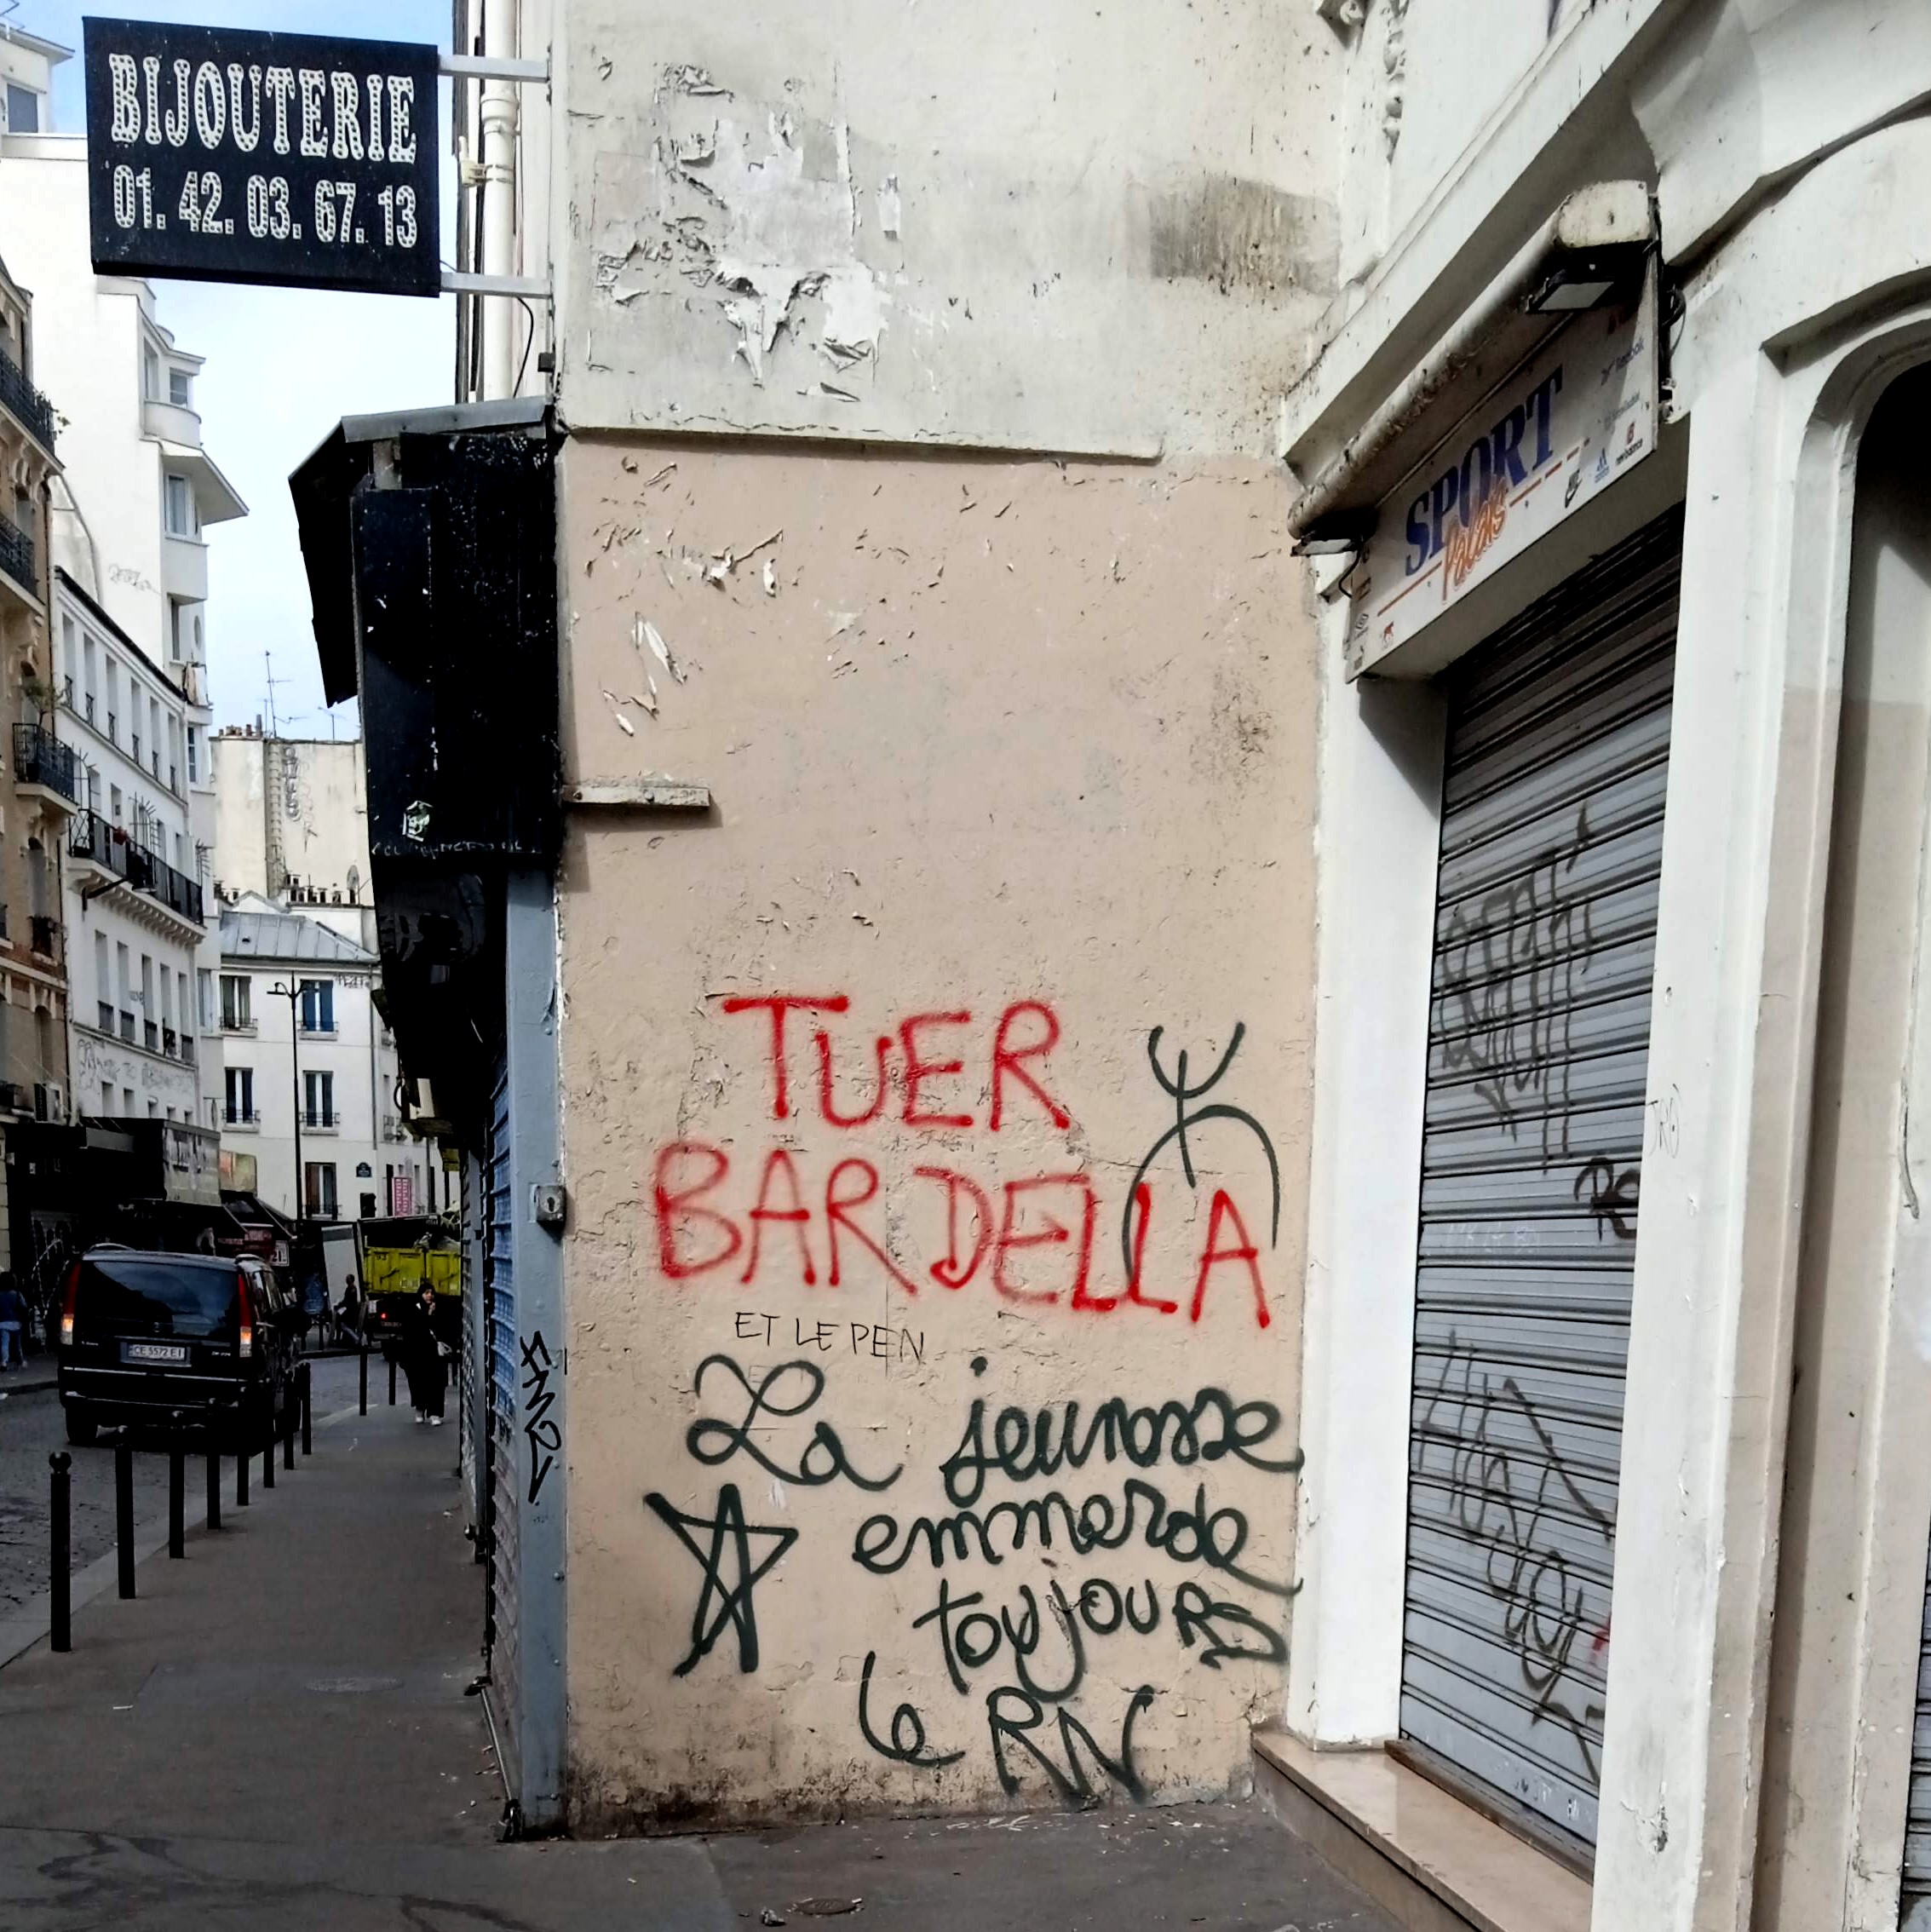 BIJOUTERIE
01. 42. 03. 67. 13
SPORT
Palais
Reebok
adidas
new balance
TUER
BARDELLA
ET LE PEN
La jeunesse
emmerde
toujours
le RN
CE 5572 EI